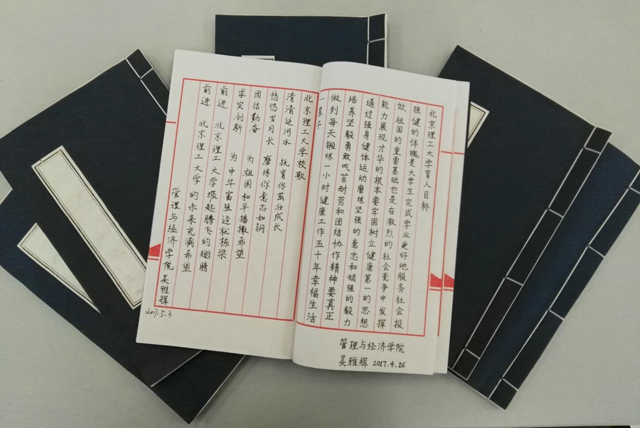 北京理工大学育人目标
强健的体魄是大学生完成学业更好地服务社会报
效祖国的重要基础也是在激烈的社会竞争中发挥
能力展现才华的根本要牢固树立健康第一的思想
通过强身健体运动磨练坚强的意志和顽强的毅力
培养坚毅勇敢吃苦耐劳和团结协作精神要真正
做到每天锻炼一小时健康工作五十年幸福生活
一辈子
管理与经济学院
吴雅辉 2017.4.26
北京理工大学校歌
清清延河水 抚育你茁壮成长
悠悠岁月长 磨练你意志如钢
团结勤奋 为祖国和平播撒希望
求实创新 为中华富强造就栋梁
前进 北京理工大学振起腾飞的翅膀
前进 北京理工大学的未来充满希望
管理与经济学院吴雅辉
2017.5.3